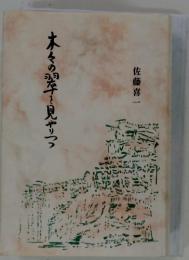 木々の翠を見やりつつ
佐藤喜一